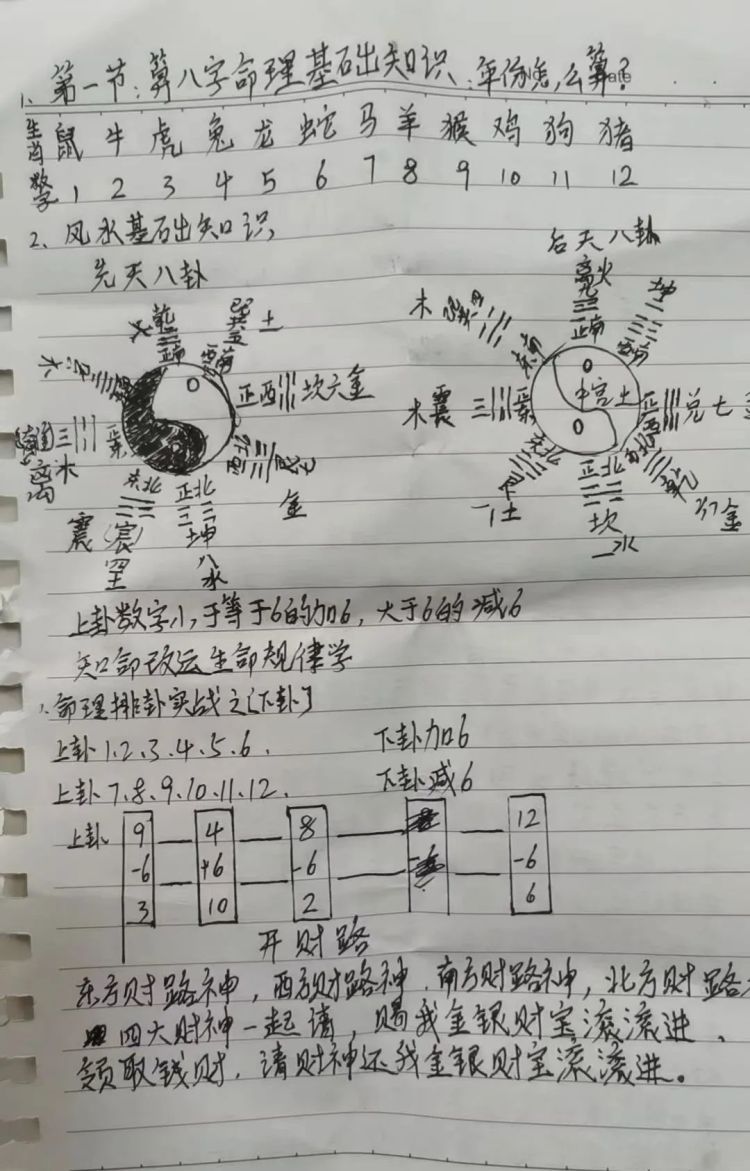 1、第一节:算八字命理基础知识:年份怎么算?
生肖 鼠 牛 虎 兔 龙 蛇 马 羊 猴 鸡 狗 猪
数字 1 2 3 4 5 6 7 8 9 10 11 12
2、风水基础知识
先天八卦
后天八卦
乾 正南
巽五 土
西南
正西 坎六金
西北
金
正北 坤八水
东北
震(宸)
正东
离
木
离火九 正南
坤二
西南
正西 兑七
西北
乾
金
正北
坎一水
东北
土
木震三 正东
东南
木
中宫土
上卦数字小于等于6的加6,大于6的减6
知命改运生命规律学
命理排卦实战之〔下卦〕
上卦1、2、3、4、5、6、 下卦加6
上卦7、8、9、10、11、12、 下卦减6
上卦 9 4 8 12
-6 +6 -6 -6
3 10 2 6
开财路
东方财路神,西方财路神,南方财路神,北方财路
四大财神一起请,赐我金银财宝滚滚进,
领取钱财,请财神还我金银财宝滚滚进。